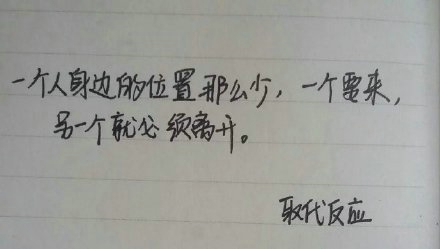 一个人身边的位置那么少，一个要来，
另一个就必须离开。
取代反应